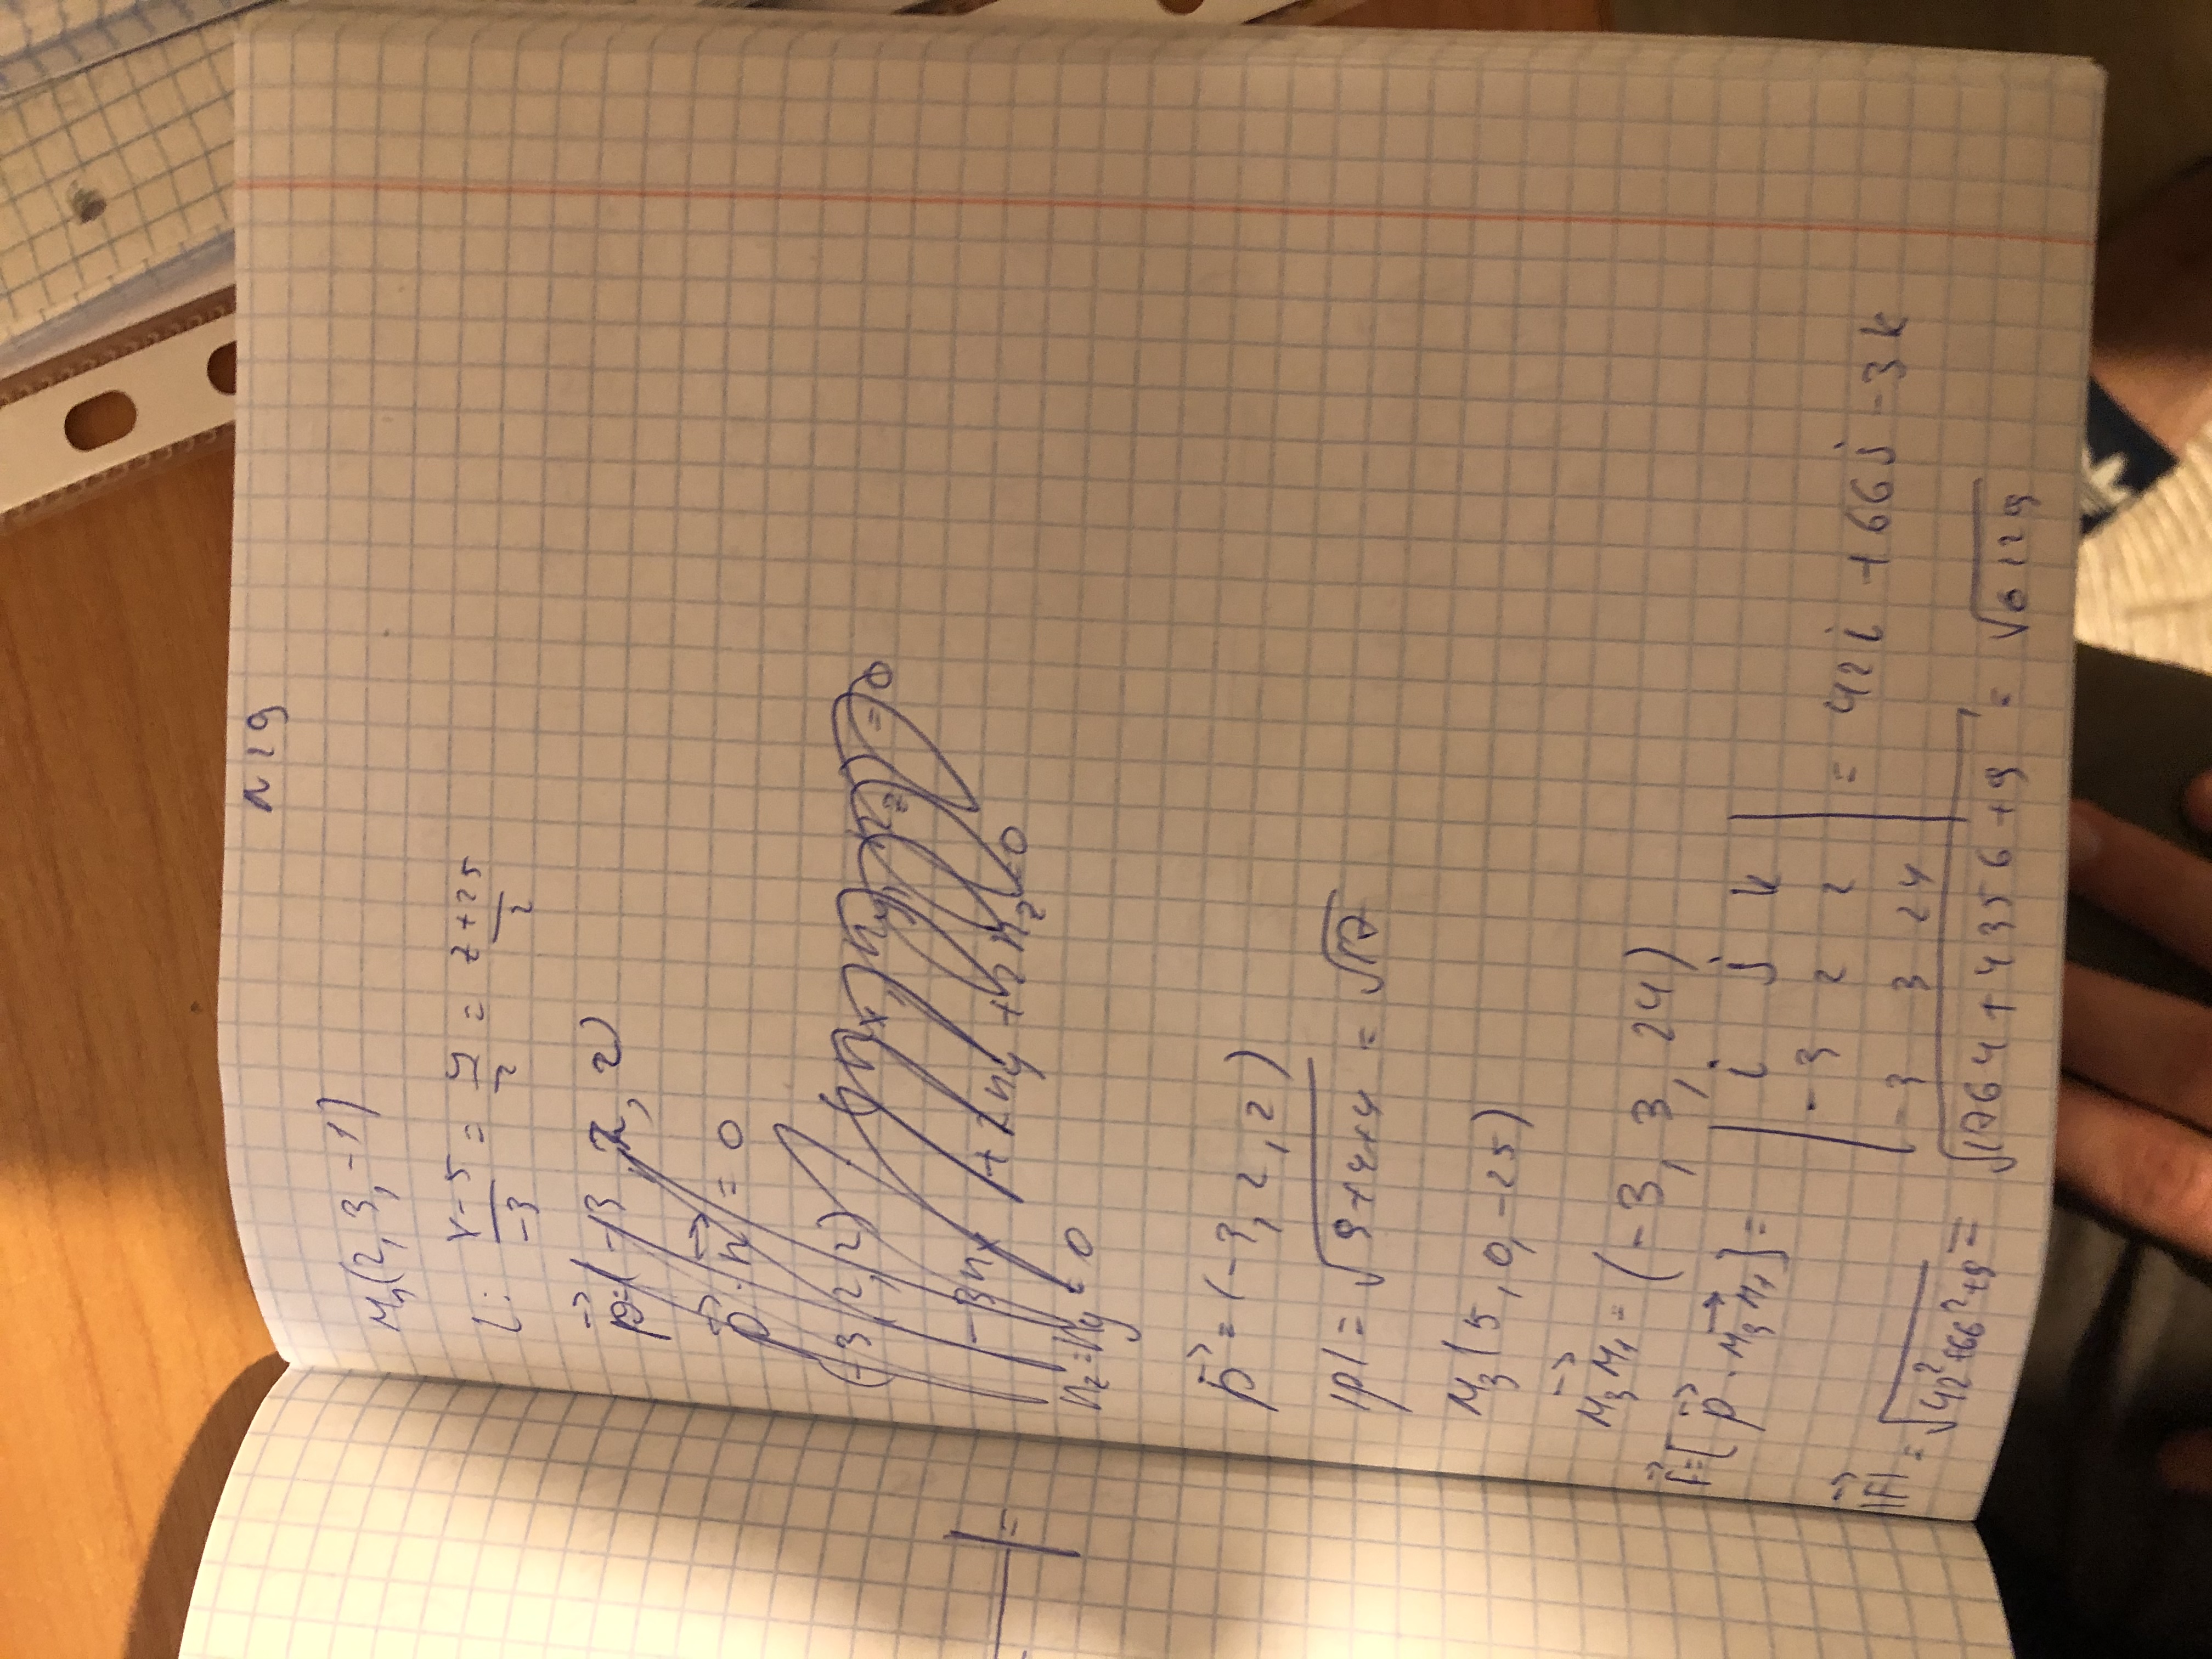 N 29
M₁(2, 3, -1)
L: x-5/-3 = y/2 = z+25/2
p⃗ = (-3, 2, 2)
p⃗ · n⃗ = 0
(-3, 2, 2)
-3nₓ + 2n_y + 2n_z = 0
n_z = n_y = 0
p⃗ = (-3, 2, 2)
|p| = √9+4+4 = √17
M₃(5, 0, -25)
M₃M₁ = (-3, 3, 24)
F⃗ = [p⃗ · M₃M₁] = | i j k
-3 2 2
-3 3 24 | = 42i + 66j - 3k
|F⃗| = √42²+66²+9 = √1764+4356+9 = √6129